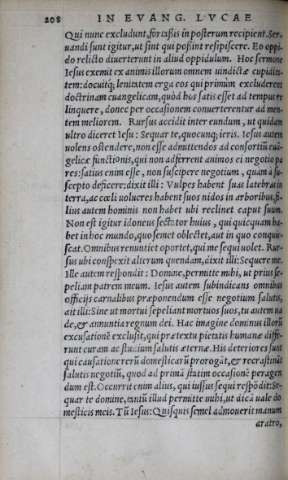 208 IN EVANG. LVCAE
Qui nunc excludunt, forsissis in posterum recipient. Ser,
uandi sunt igitur, ut sint qui possint resipiscere. Eo oppi,
do relicto diuerterunt in aliud oppidulum. Hoc sermone
Iesus exemit ex animis illorum omnem uindictæ cupidita
tem: docuitq́; lenitatem erga eos qui primùm excluderent
doctrinam euangelicam, quòd hos satis esset ad tempus re
linquere, donec per occasionem conuerterentur ad men,
tem meliorem. Rursus accidit inter eundum, ut quidam
ultro diceret Iesu: Sequar te, quocunq; ieris. Iesus autem
uolens ostendere, non esse admittendos ad consortiũ euã-
gelicæ functionis, qui non adferrent animos ei negotio pa
res: satius enim esse, non suscipere negotium, quàm à su-
scepto deficere: dixit illi: Vulpes habent suas latebras in
terra, ac cœli uolucres habent suos nidos in arboribus, fi-
lius autem hominis non habet ubi reclinet caput suum.
Non est igitur idoneus sectator huius, qui quicquam ha-
bet in hoc mundo, quo semet oblectet, aut in quo conquie-
scat. Omnibus renuntiet oportet, qui me sequi uolet. Rur-
sus ubi conspexit alterum quendam, dixit illi: Sequere me.
Ille autem respondit: Domine, permitte mihi, ut prius se-
peliam patrem meum. Iesus autem subindicans omnibus
officijs carnalibus præponendum esse negotium salutis,
ait illi: Sine ut mortui sepeliant mortuos suos, tu autem ua
de, & annuntia regnum dei. Hac imagine dominus illorũ
excusationẽ exclusit, qui prætextu pietatis humanæ diffe-
runt curam ac studium salutis æternæ. His deteriores sunt
qui causatione rerũ domesticarũ prorogãt, & recrastinãt
salutis negotiũ, quod ad primã statim occasionẽ peragen
dum est. Occurrit enim alius, qui iussus sequi respõdit: Se-
quar te domine, tantũ illud permitte mihi, ut dicã uale do
mesticis meis. Tũ Iesus: Quisquis semel admouerit manum
aratro,